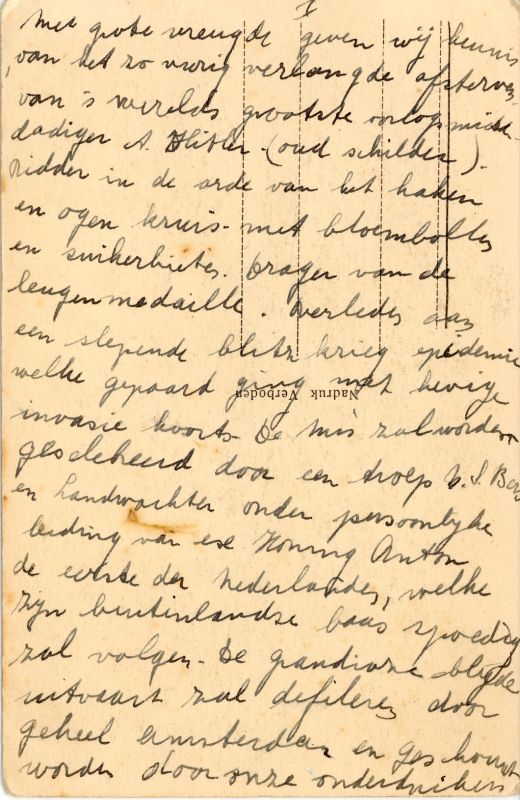 I
Met grote vreugde geven wij kennis
van het zo vurig verlangde afsterven
van 's werelds grootste oorlogsmis-
dadiger A. Hitler. (oud schilder).
Ridder in de orde van het haken
en ogen kruis. met bloembollen
en suikerbieten. Drager van de
leugenmedaille. Overleden aan
een slepende blitz krieg epidemie
welke gepaard ging met hevige
invasie koorts. De mis zal worden
gecelebreerd door een troep
en Landwachter onder persoonlijke
leiding van Koning Anton
de eerste der Nederlanden, welke
zijn buitinlandse baas spoedig
zal volgen. De grandioze blijde
uitvaart zal defileren door
geheel Amsterdam en
worden door onze onderduikers
Nadruk Verboden